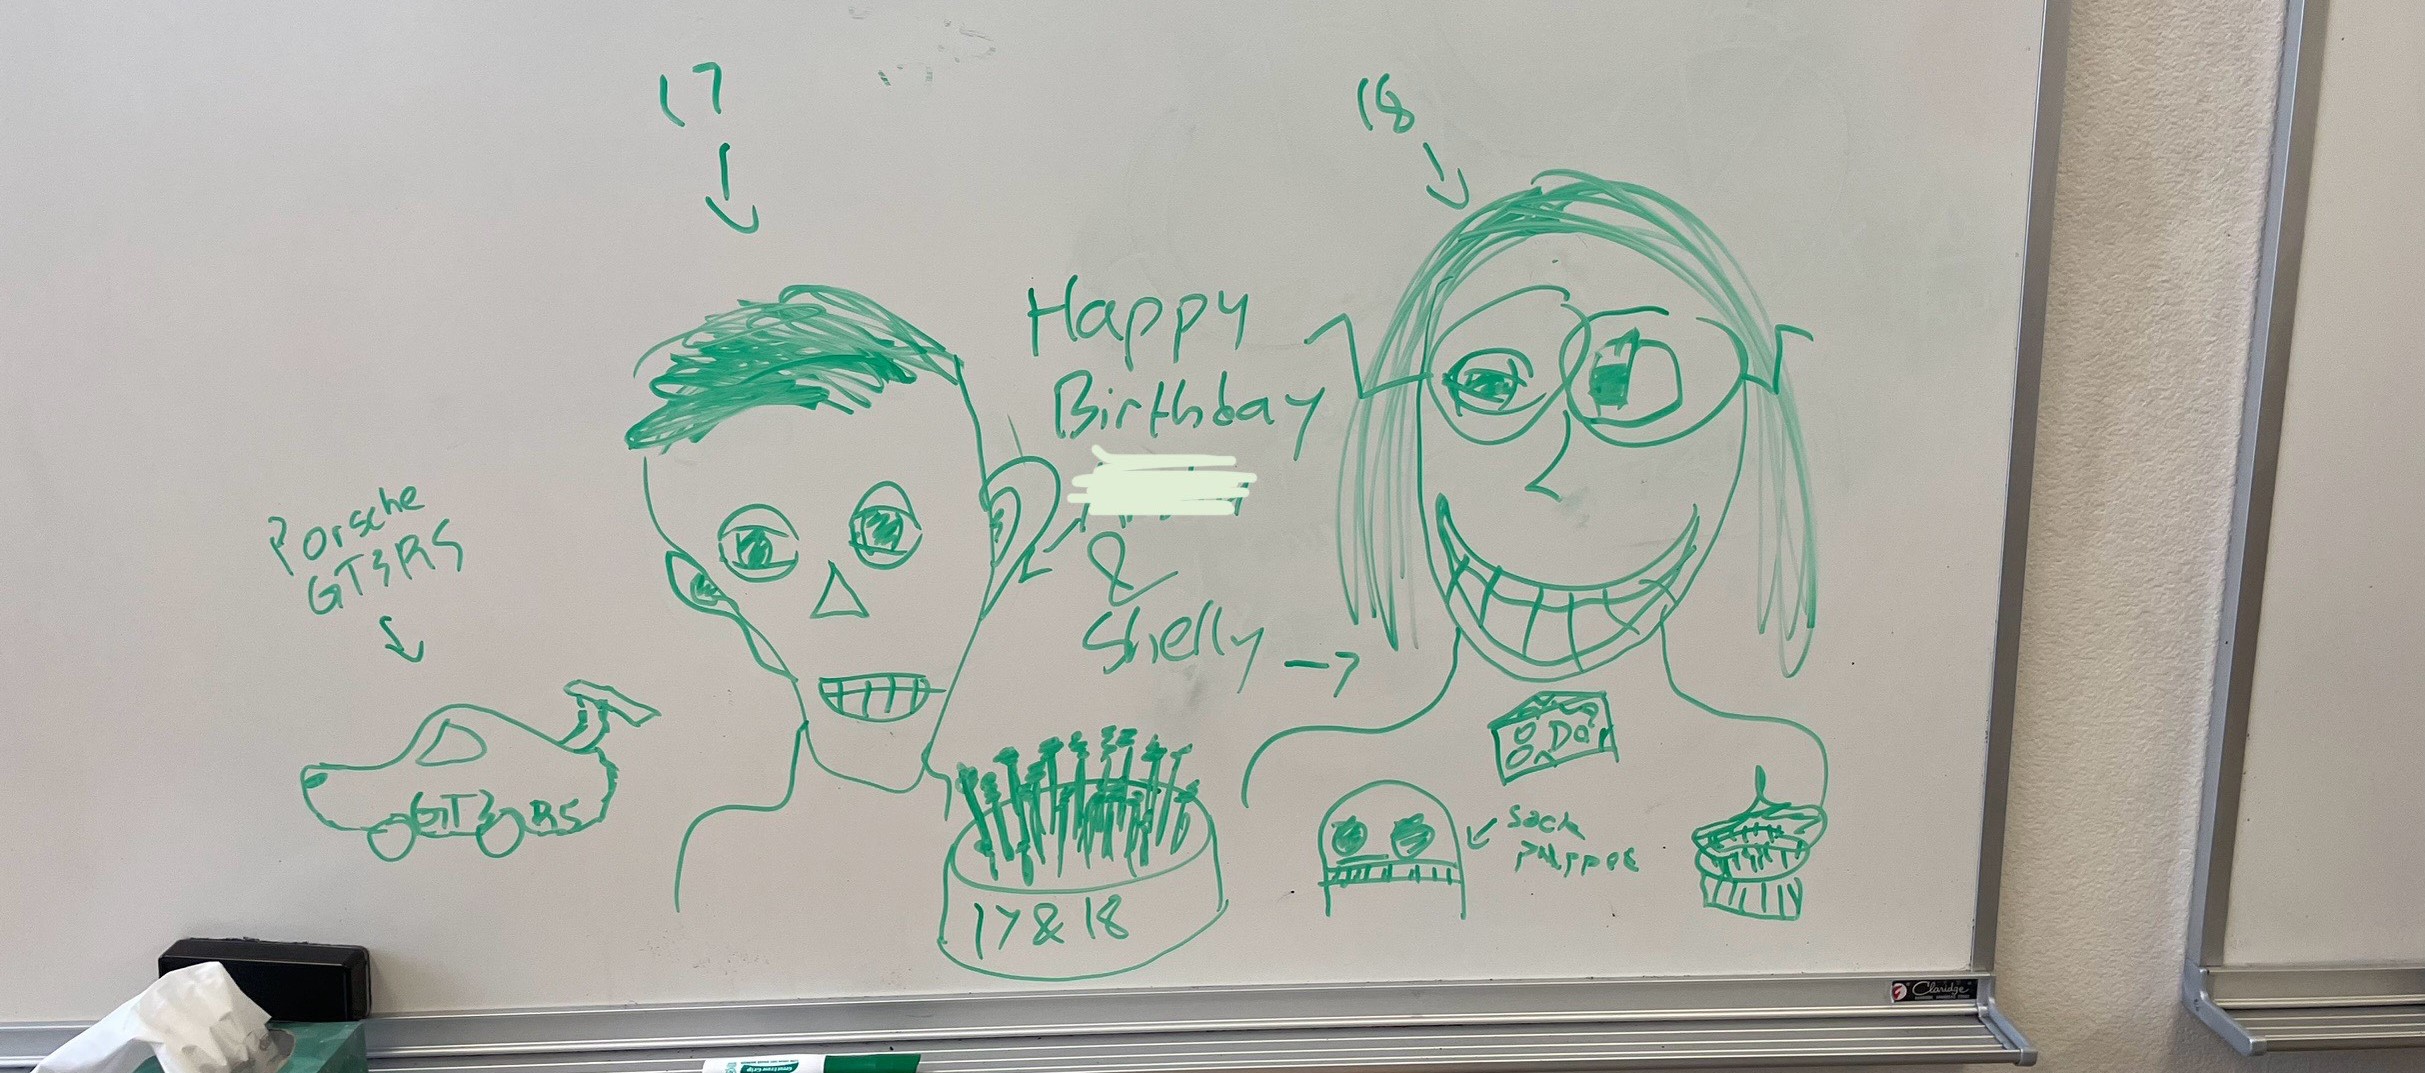 17
18
Happy
Birthday
&
Shelly
Porsche
GT3RS
GT3 RS
17 & 18
Sock
puppet
Claridge